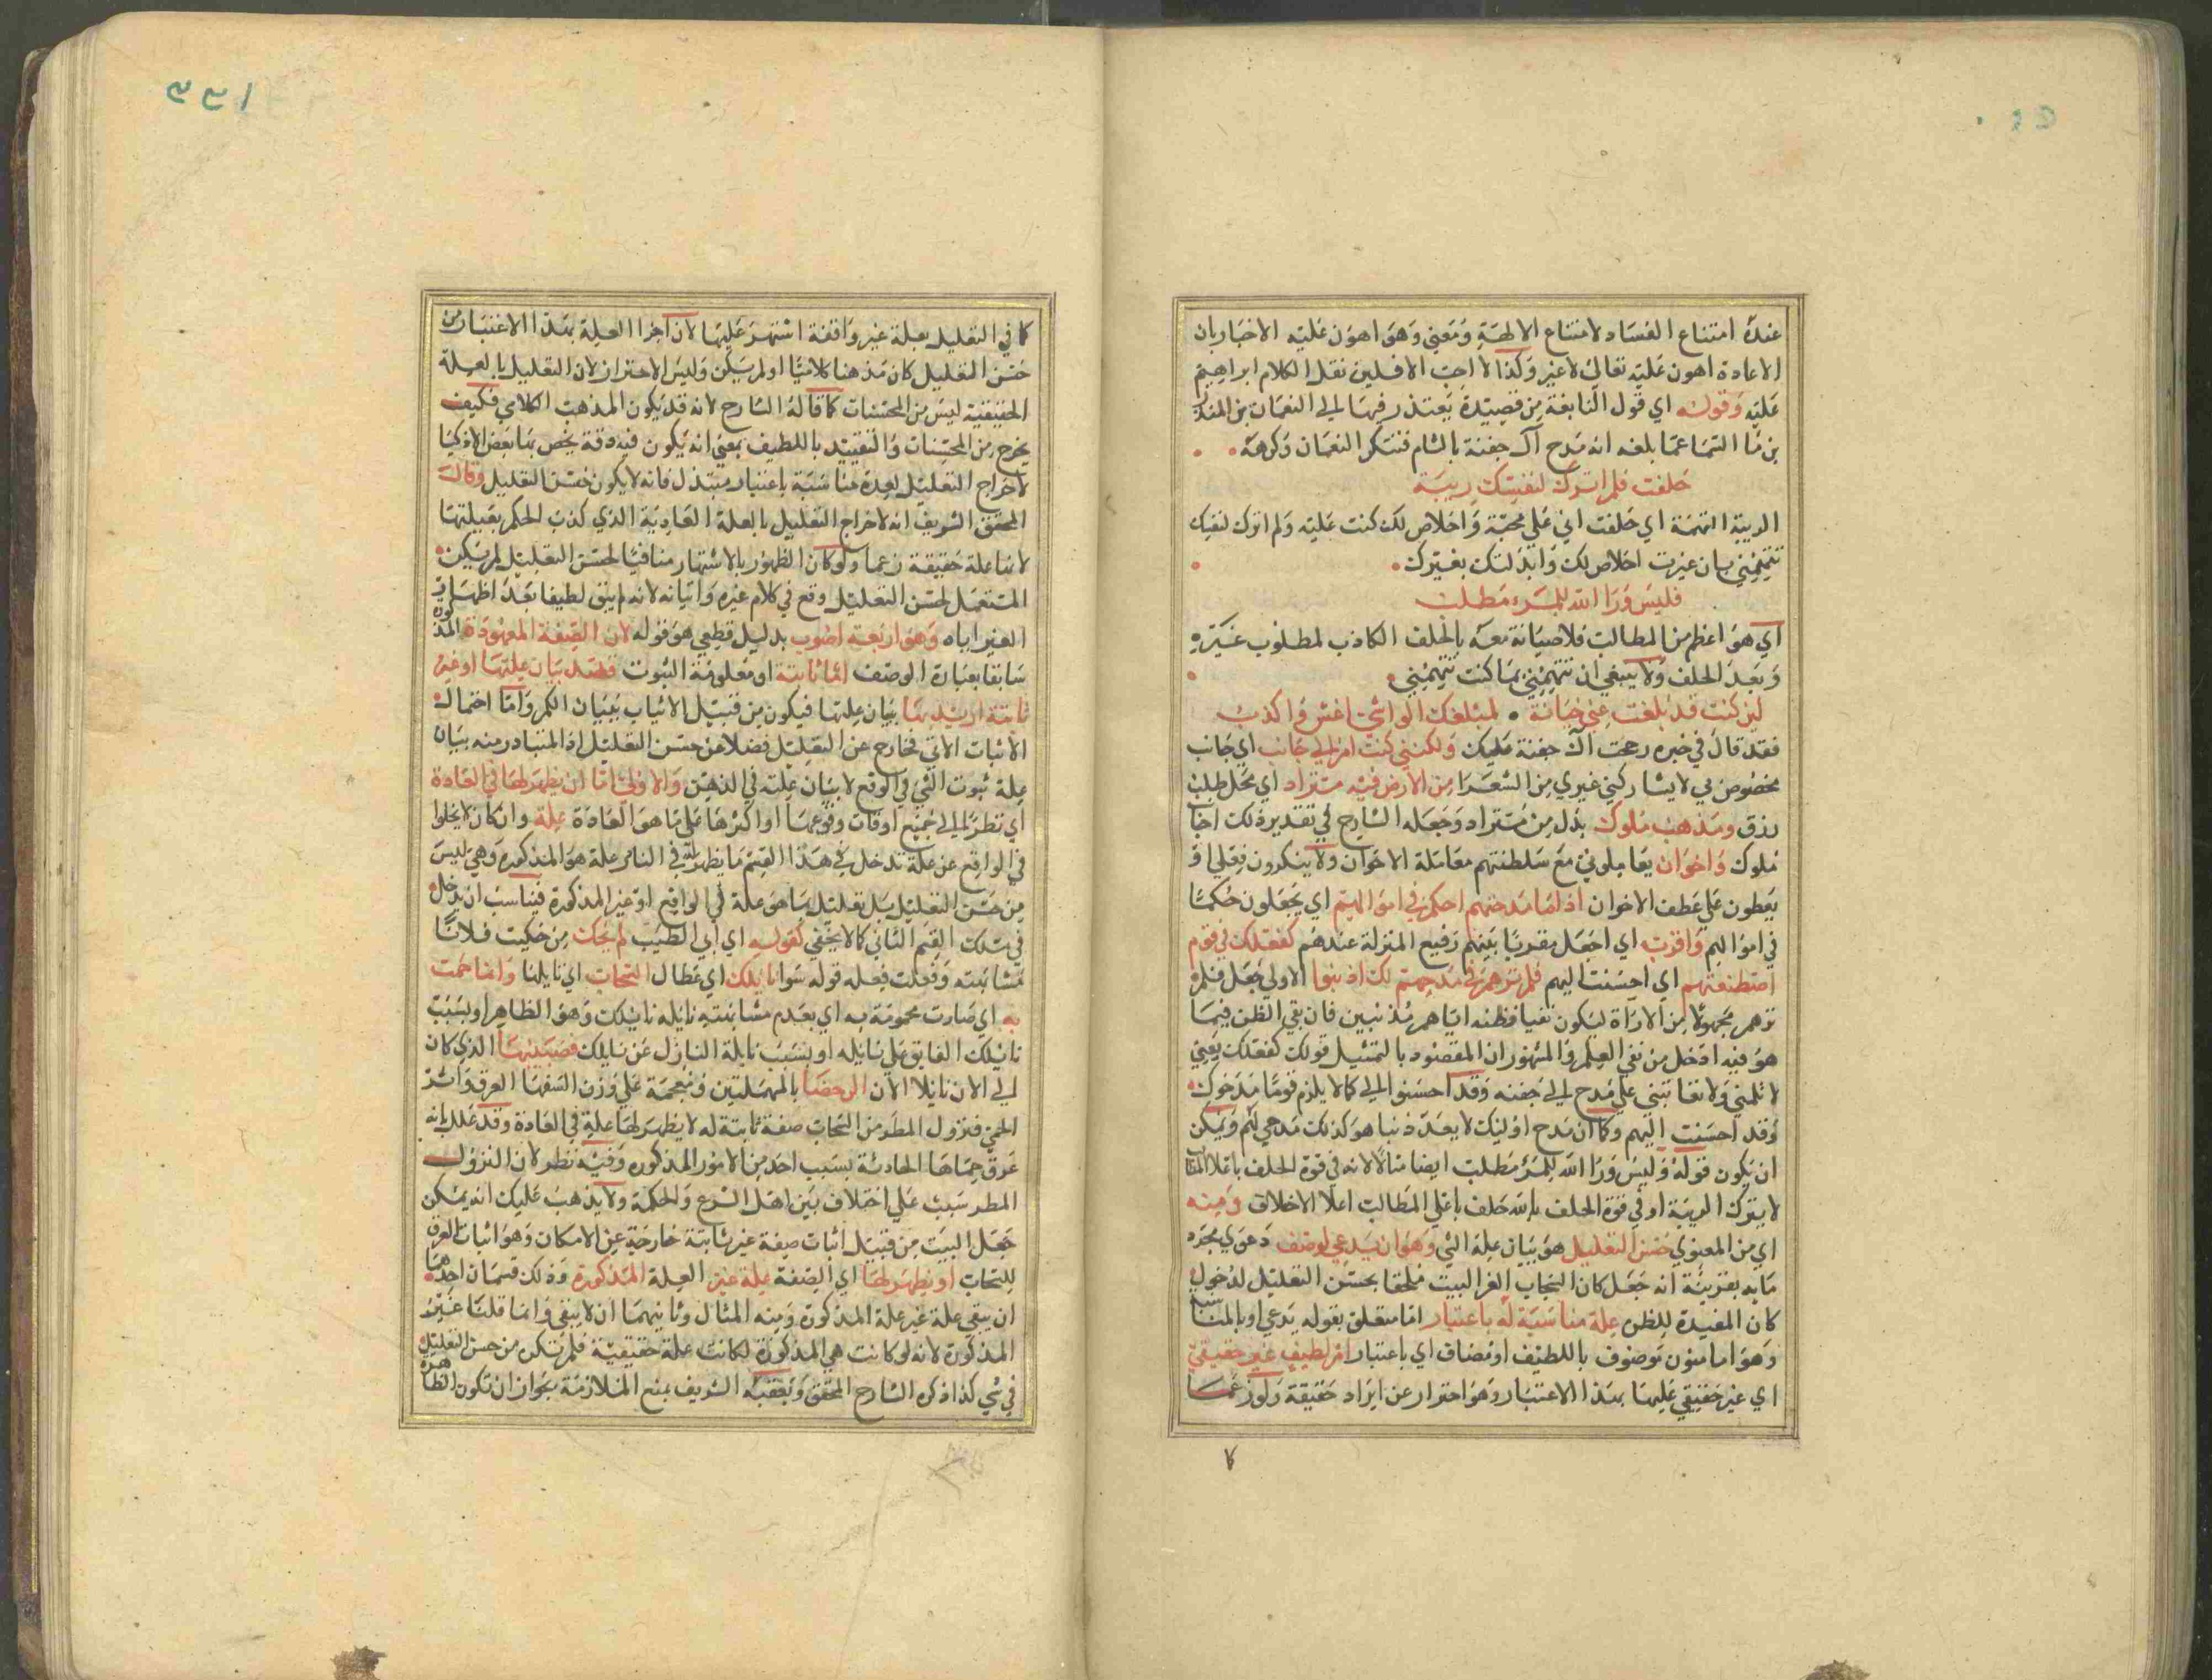 عنده امتناع الفساد لامتناع الالهة ومعني وهو اهون عليه الاخبار بان
الاعادة اهون عليه تعالي لاغير وكذا لا احب الافلين نقل الكلام ابراهيم
عليه وقوله اي قول النابغة من قصيدة يعتذر فيها الي النعمان بن المنذر
بن ما السما عما بلغه انه مدح آل جفنة بالشام فتنكر النعمان وكرهه
حلفت فلم اترك لنفسك ريبة
الريبة التهمة اي حلفت اني علي محبة واخلاص لك كنت عليه ولم اترك لنفسك
تتهمني بان غيرت اخلاص لك وابدلتك بغيرك
فليس ورا الله للمرء مطلب
اي هو اعظم من المطالب فلا صيانة معه بالحلف الكاذب لمطلوب غيره
وبعد الحلف ولا ينبغي ان تتهمني بما كنت تتهمني
لين كنت قد بلغت عني خيانة لمبلغك الواشي اغش واكذب
فقد قال في خبره رجحت آل جفنة عليك ولكنني كنت امرا لي جانب اي جانب
مخصوص بي لا يشاركني غيري من الشعرا من الارض فيه مستراد اي محل طلب
رزق ومذهب ملوك بدل من مستراد وجعله الشارح في تقدير في تلك اجا
ملوك واخوان يعاملوني مع سلطنتهم معاملة الاخوان ولا ينكرون فعلي او
يعطون علي عطف الاخوان اذا ما مدحتهم احكم في اموالهم اي يجعلون حكمتا
في اموالهم واقرب اي اجعل مقربا بينهم رفيع المنزلة عندهم كفعلك في قوم
اصطنعتهم اي احسنت اليهم فلم ترهم في مدحهم لك اذنبوا الاولي جعل فلم
ترهم مجهولا من الاراة ليكون نفيا لظنه اياهم مذنبين فان بقي الظن فيما
هو فيه ادخل من نفي العلم والمشهور ان المقصود بالتمثيل قولك كفعلك يعني
لا تلمني ولا تعاتبني علي مدح الي جفنه وقد احسنوا الي كما لا يلزم قوما مدحوك
وقد احسنت اليهم وكما ان مدح اوليك لا يعد ذنبا هو كذلك مدحي لهم ويمكن
ان يكون قوله وليس ورا الله للمرء مطلب ايضا مثالا لانه في قوة الحلف باعلا المطا
لا يترك الريبة او في قوة الحلف بالله حلف باعلي المطالب اعلا الاخلاق ومنه
اي من المعنوي حسن التعليل هو بيان علة الشي وهو ان يدعي لوصف دعوي مجرد
ما به بقرينة انه جعل كان السحاب الغر البيت ملحقا بحسن التعليل لدخول
كان المفيدة للظن علة مناسبة له باعتبار اما متعلق بقوله يدعي او بالمناسبا
وهو اما منون موصوف باللطيف او مضاف اي باعتبار امر لطيف غير حقيقي
اي غير حقيقي عليها بهذا الاعتبار وهو احترار عن ايراد حقيقة ولو زعما
كا
١٣٣
كما في التعليل بعلة غير واقفة اشتهر عليها لان اجرا العلة بهذا الاعتبار من
حسن التعليل كان مذهبا كلاميا اولم يكن وليس الاحتراز لان التعليل بالعلة
الحقيقية ليس من المحسنات كما قاله الشارح لانه قد يكون المذهب الكلامي فكيف
يخرج من المحسنات والتقييد باللطيف بمعني انه يكون فيه دقة يخص بها بعض الاذكيا
لاخراج التعليل لعدة مناسبة باعتبار مبتذل فانه لا يكون حسن التعليل وقال
المحقق الشريف انه لاخراج التعليل بالعلة العادية الذي كذب الحكم بعيلتها
لانها علة حقيقة زعما ولو كان الظهور بالاشتهار منافيا لحسن التعليل لم يكن
المستعمل لحسن التعليل وقع في كلام غيره واتيانه لانه لم يبق لطيفا بعد اظهار
الغير اياه وهو اربعة اضرب بدليل قطعي هو قوله لان الصفة المعهودة المذكورة
سابقا بعبارة الوصف اما ثابتة او معلومة الثبوت قصد بيان علتها او غير
ثابتة اريد بها بيان علتها فيكون من قبيل الاثبات ببيان الكم واما احتمال
الاثبات الاتي فخارج عن التعليل فضلا عن حسن التعليل اذ المتبادر منه بيان
علة ثبوت الشي في الواقع لا بيان علته في الذهن والاولي اما ان يظهر لها في العادة
اي نظر الي جميع اوقات وقوعها او اكثرها علي ما هو العادة علة وان كان لا يخلوا
في الواقع عن علة تدخل في هذا القسم ما يظهر له في النامر علة هو المذكورة وهي ليس
من حسن التعليل بل تعليل بما هو علة في الواقع او غير المذكورة فيناسب ان يدخل
في سلك القسم الثاني كما لا يخفي كقوله اي ابي الطيب لم تحك من حكيت فلانا
شابهته وفعلت فعله قوله سوا نايلك اي عطال السحاب اي نايلنا وانما حمت
به اي صارت محمومة به اي بعدم مشابهته نايله نايلك وهو الظاهر او بسبب
نايلك الفايق علي نايله او بسبب نايلة النازل عن نايلك فصبيبها الذي كان
الي الان نايلا الان الرحضا بالمهملتين ومعجمة علي وزن السفها العرق واثر
الحمي فنزول المطر من السحاب صفة ثابتة له لا يظهر لها علة في العادة وقد علل بانه
عرق حماها الحادثة بسبب احد من الامور المذكوره وفيه نظر لان النزول
المطر سبب علي اختلاف بين اهل الشرع والحكمة ولا يذهب عليك انه يمكن
جعل البيت من قبيل اثبات صفة غير ثابتة خارجة عن الامكان وهو اثبات العرق
للسحاب او يظهر لها اي الصفة علة غير العلة المذكورة وذلك قسمان احدهما
ان يبقي علة غير علة المذكورة ومنه المثال وثانيهما ان لا يبقي وانما قلنا غير
المذكورة لانه لو كانت هي المذكورة لكانت علة حقيقية فلم تكن من حسن التعليل
في شي كذا ذكره الشارح المحقق وتعقبه الشريف بمنع الملازمة بجواز ان تكون الظاهرة